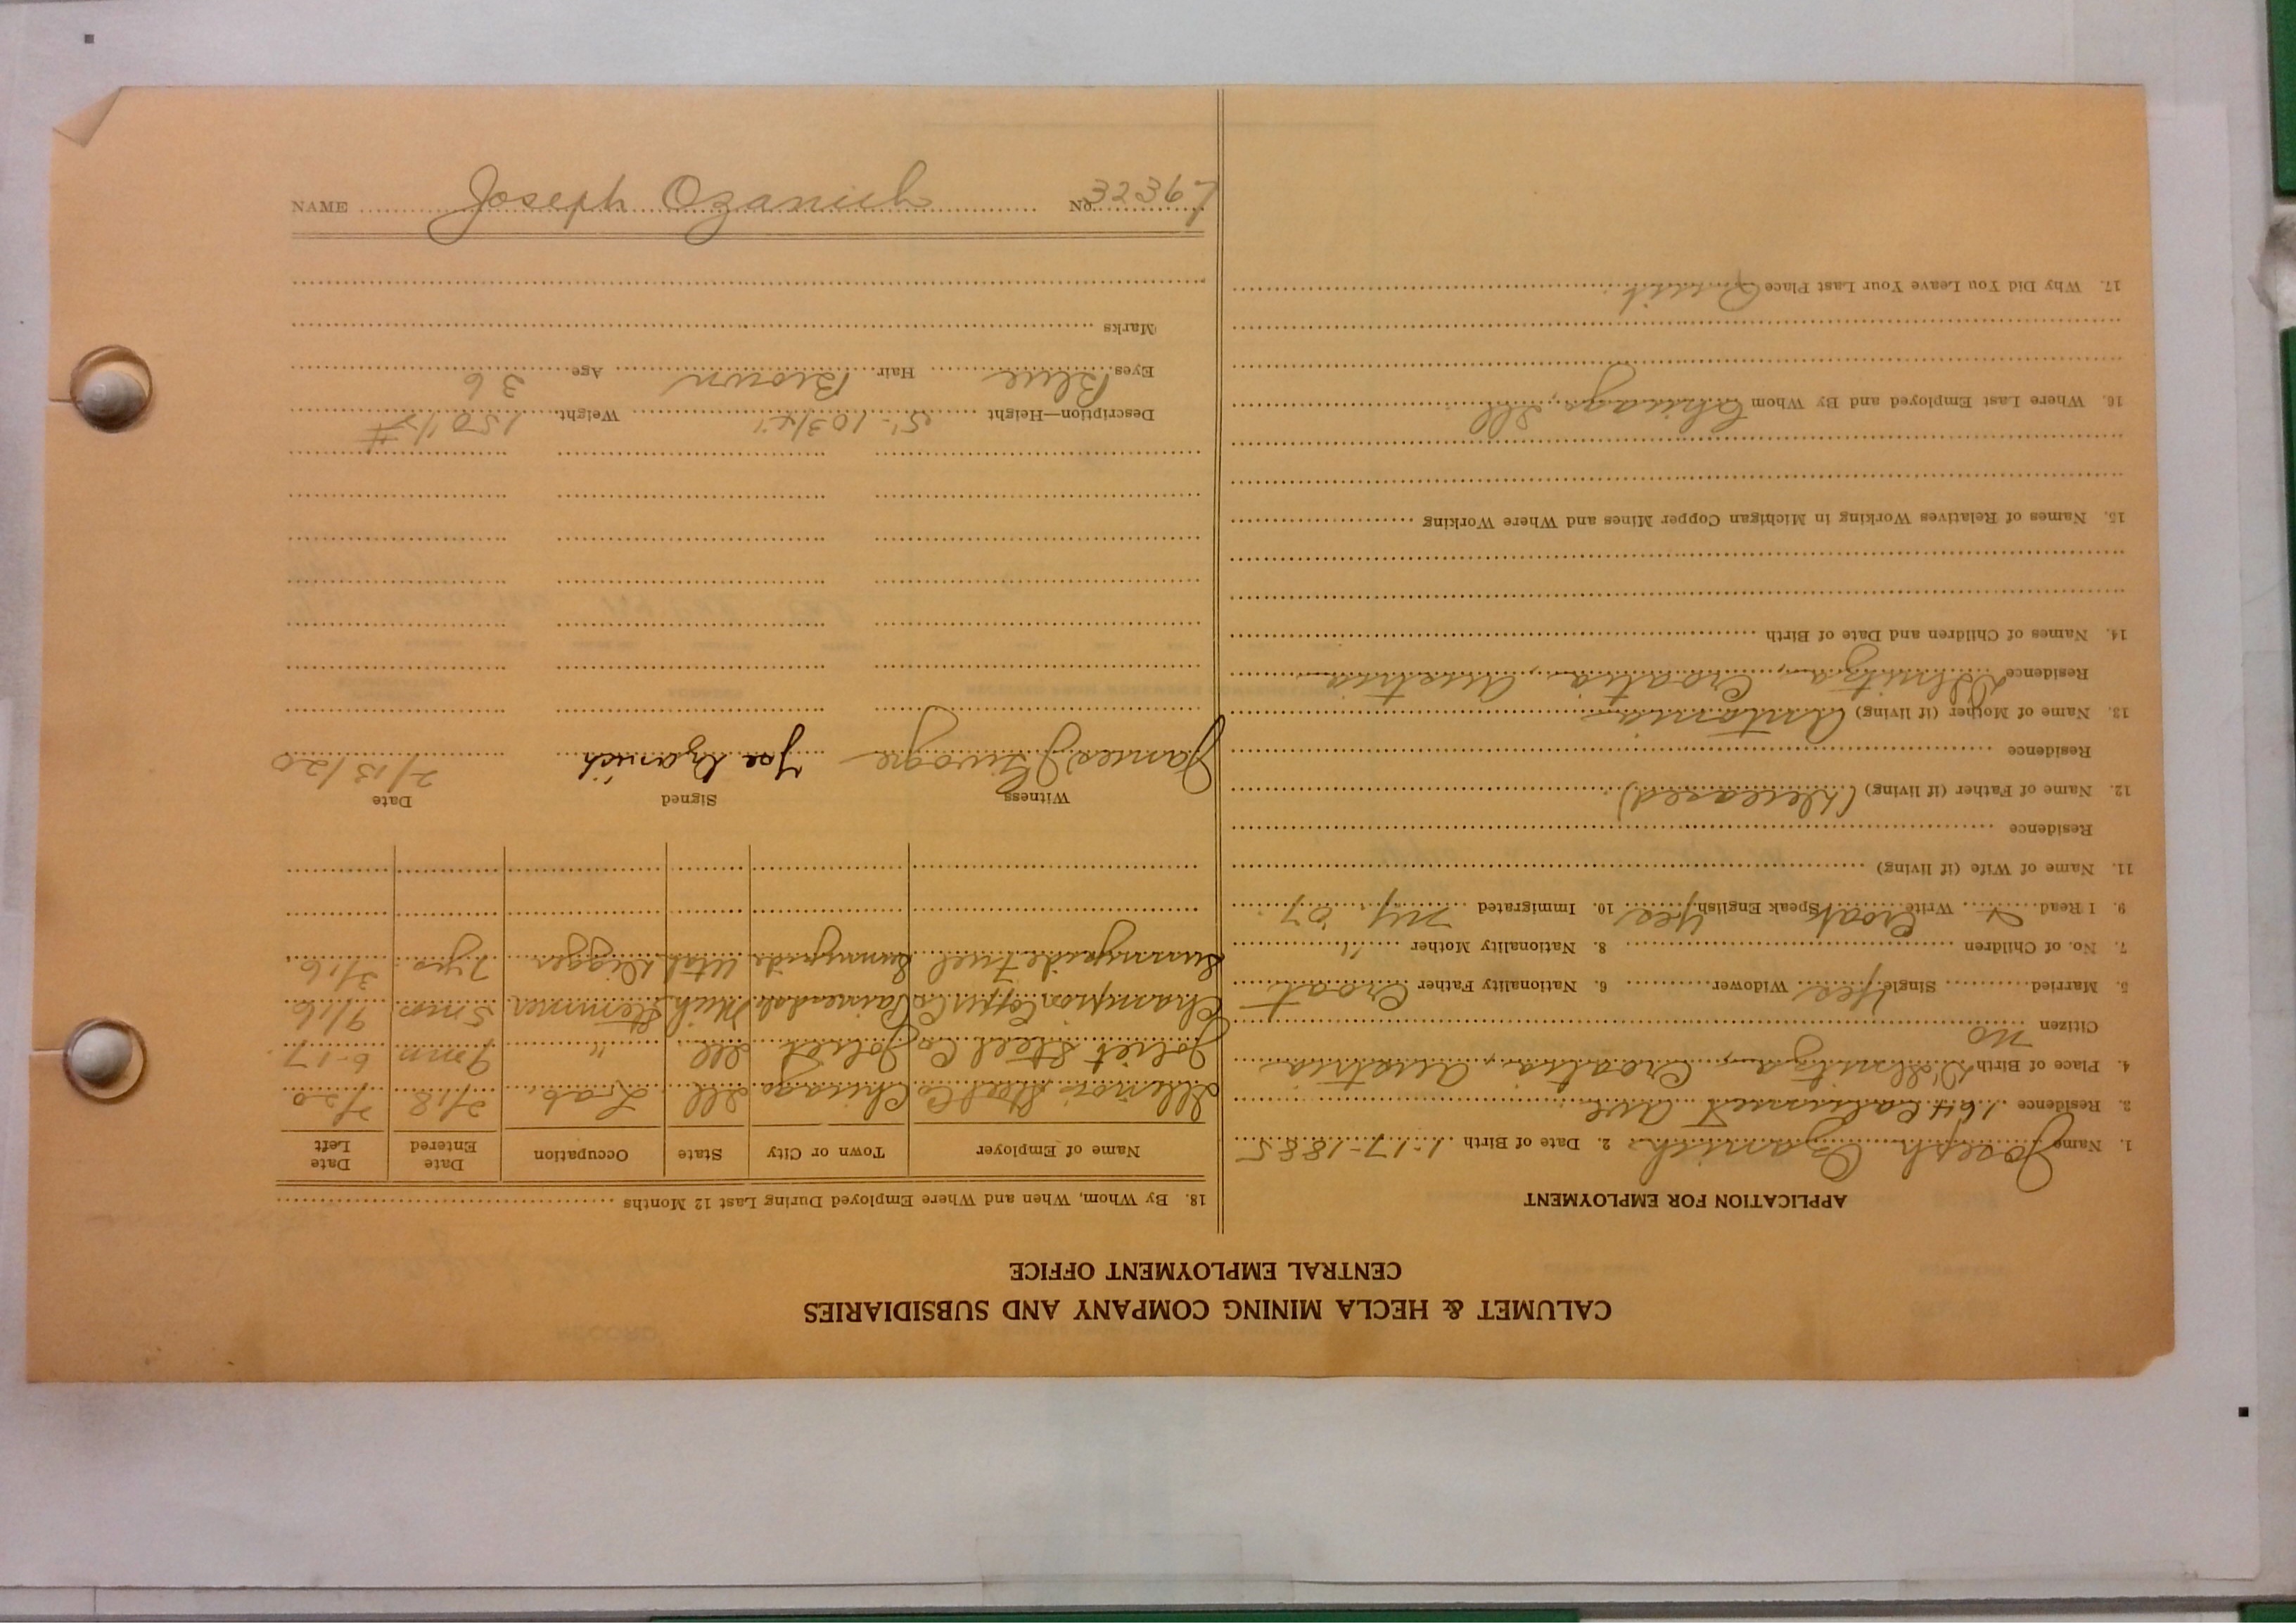 CALUMET & HECLA MINING COMPANY AND SUBSIDIARIES
CENTRAL EMPLOYMENT OFFICE
APPLICATION FOR EMPLOYMENT
1. Name Joseph Ozanich 2. Date of Birth 1-17-1885
3. Residence 164 Calumet Ave
4. Place of Birth Delnitza, Croatia, Austria
Citizen no
5. Married Single yes Widower 6. Nationality Father Croat
7. No. of Children 8. Nationality Mother "
9. I Read Write Croat Speak English Yes 10. Immigrated NY 07
11. Name of Wife (if living)
Residence
12. Name of Father (if living) (Deceased)
Residence
13. Name of Mother (if living) Antonia
Residence Delnitza, Croatia, Austria
14. Names of Children and Date of Birth
15. Names of Relatives Working in Michigan Copper Mines and Where Working
16. Where Last Employed and By Whom Chicago, Ill
17. Why Did You Leave Your Last Place Quit
18. By Whom, When and Where Employed During Last 12 Months
Name of Employer Town or City State Occupation Date Entered Date Left
Illinois Steel Co Chicago Ill Lab. 2/18 2/20
Joliet Steel Co Joliet Ill " 9 mn 6-17
Champion Copper Co Painesdale Mich Trammer 5 mos 9/16
Sunnyside Fuel Sunnyside Utah Digger 7 yrs 3/16
Witness Signed Date
James Joe Ozanich 2/13/20
Description—Height 5'-10 3/4" Weight 150 1/2 #
Eyes Blue Hair Brown Age 36
Marks
NAME Joseph Ozanich No 32367